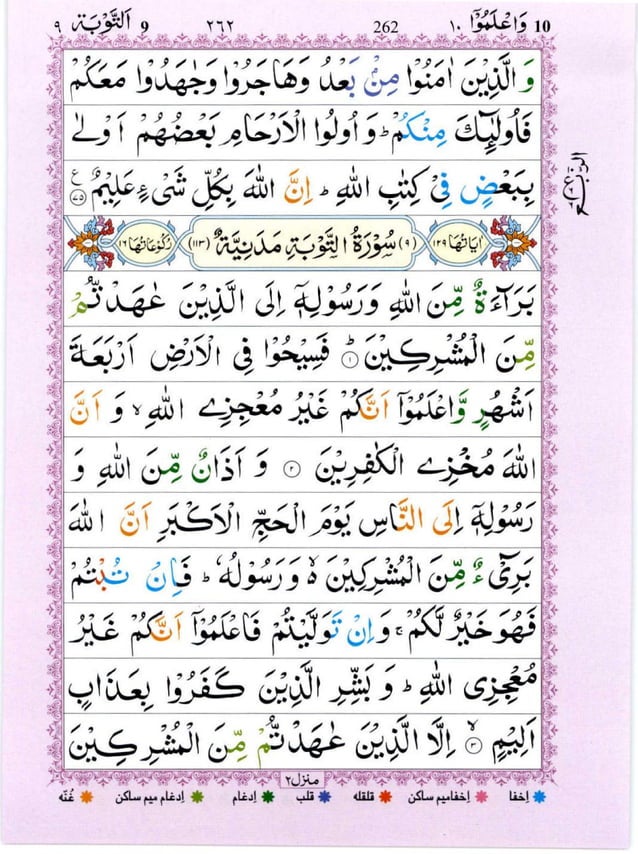 اَلتَّوْبَة ٩ 9 ٢٦٢ 262 وَاعْلَمُوْۤا ١٠ 10
وَالَّذِيْنَ اٰمَنُوْا مِنْۢ بَعْدُ وَهَاجَرُوْا وَجٰهَدُوْا مَعَكُمْ
فَاُولٰٓئِكَ مِنْكُمْ ؕ وَاُولُوا الْاَرْحَامِ بَعْضُهُمْ اَوْلٰى
بِبَعْضٍ فِىْ كِتٰبِ اللّٰهِ ؕ اِنَّ اللّٰهَ بِكُلِّ شَىْءٍ عَلِيْمٌ ﴿٧٥﴾ ع
اٰيَاتُهَا ١٢٩ (٩) سُوْرَةُ التَّوْبَةِ مَدَنِيَّةٌ (١١٣) رُكُوْعَاتُهَا ١٦
بَرَآءَةٌ مِّنَ اللّٰهِ وَرَسُوْلِهٖۤ اِلَى الَّذِيْنَ عٰهَدْتُّمْ
مِّنَ الْمُشْرِكِيْنَ ؕ ﴿١﴾ فَسِيْحُوْا فِى الْاَرْضِ اَرْبَعَةَ
اَشْهُرٍ وَّاعْلَمُوْۤا اَنَّكُمْ غَيْرُ مُعْجِزِى اللّٰهِ ۙ وَ اَنَّ
اللّٰهَ مُخْزِى الْكٰفِرِيْنَ ﴿٢﴾ وَ اَذَانٌ مِّنَ اللّٰهِ وَ
رَسُوْلِهٖۤ اِلَى النَّاسِ يَوْمَ الْحَجِّ الْاَكْبَرِ اَنَّ اللّٰهَ
بَرِىْٓءٌ مِّنَ الْمُشْرِكِيْنَ ۙ وَرَسُوْلُهٗ ؕ فَاِنْ تُبْتُمْ
فَهُوَ خَيْرٌ لَّكُمْ ۚ وَاِنْ تَوَلَّيْتُمْ فَاعْلَمُوْۤا اَنَّكُمْ غَيْرُ
مُعْجِزِى اللّٰهِ ؕ وَ بَشِّرِ الَّذِيْنَ كَفَرُوْا بِعَذَابٍ
اَلِيْمٍ ۙ ﴿٣﴾ اِلَّا الَّذِيْنَ عٰهَدْتُّمْ مِّنَ الْمُشْرِكِيْنَ
منزل ٢
اِخفا اِخفامیم ساکن قلقله قلب اِدغام اِدغام میم ساکن غُنّه